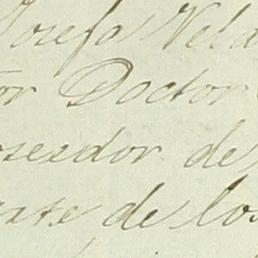 Josefa Vela
or Doctor
oseedor de
arte de los